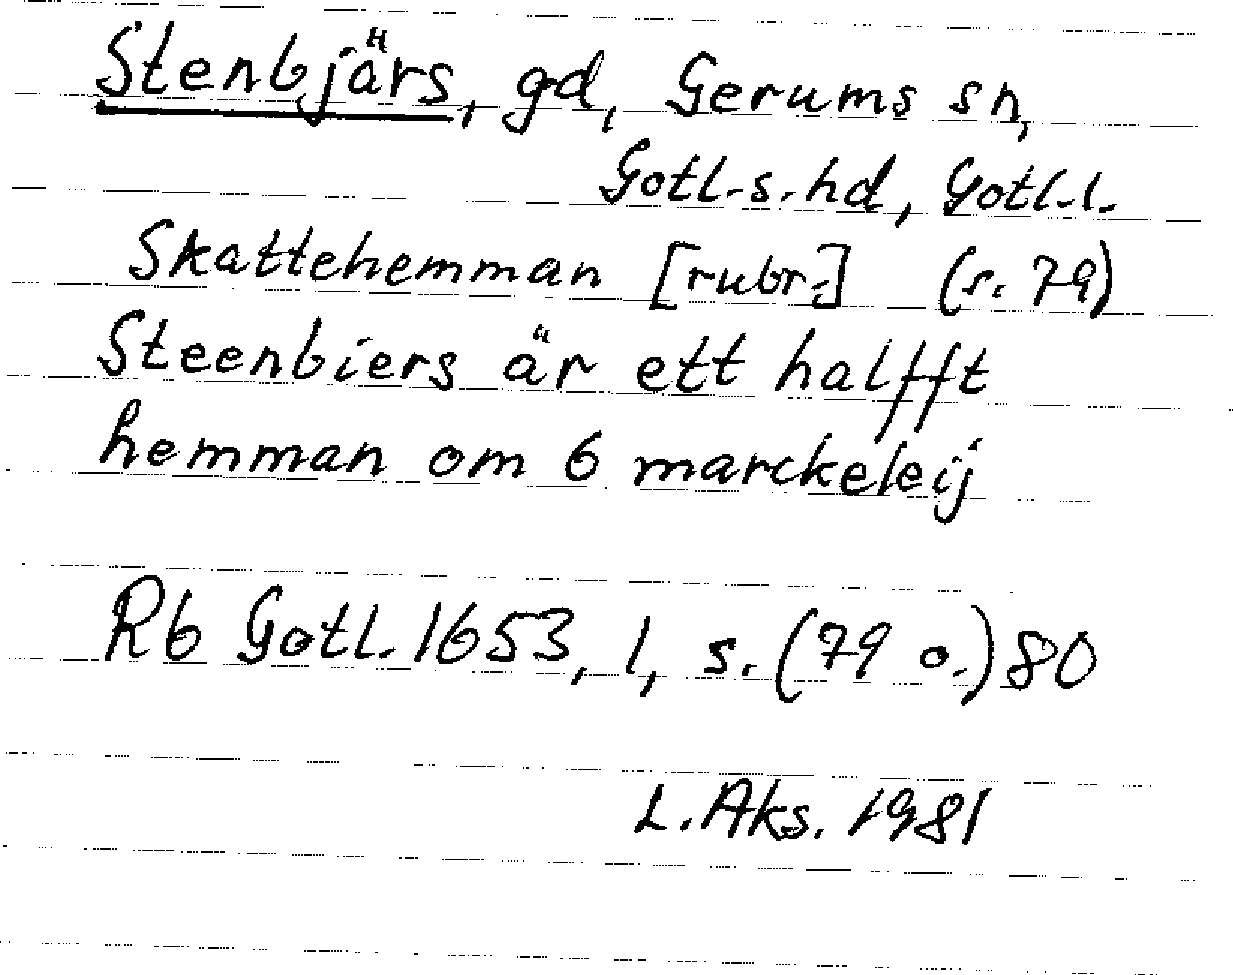 Stenbjärs, gd, Gerums sn,
Gotl.s.hd, Gotl.l.
Skattehemman [rubr.] (s. 79)
Steenbiers är ett halfft
hemman om 6 marckeleij
Rb Gotl. 1653, 1, s. (79 o.) 80
L. Aks. 1981